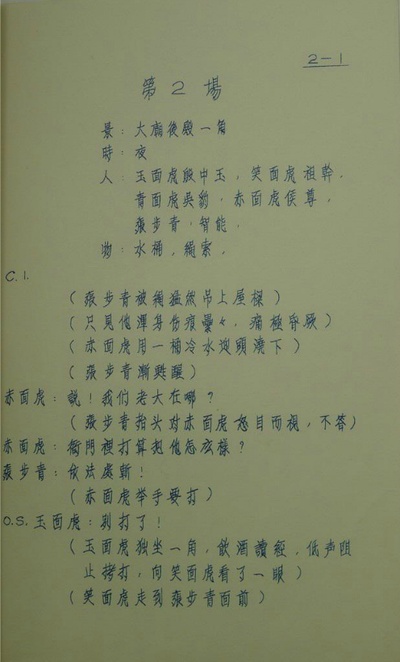 2-1
第2場
景:大廟後殿一角
時:夜
人:玉面虎殷中玉,笑面虎祖幹.
青面虎吳豹,赤面虎侯尊,
張步青,智能.
物:水桶,繩索.
C.1.
(張步青被繩猛然吊上屋樑)
(只見他渾身伤痕纍々,痛極昏厥)
(赤面虎用一桶冷水從頭澆下)
(張步青漸甦醒)
赤面虎:說!我们老大在哪?
(張步青抬头对赤面虎怒目而視,不答)
赤面虎:衙門裡打算把他怎么樣?
張步青:依法處斬!
(赤面虎举手要打)
O.S.玉面虎:别打了!
(玉面虎独坐一角,飲酒讀經,低声阻
止拷打,向笑面虎看了一眼)
(笑面虎走到張步青面前)